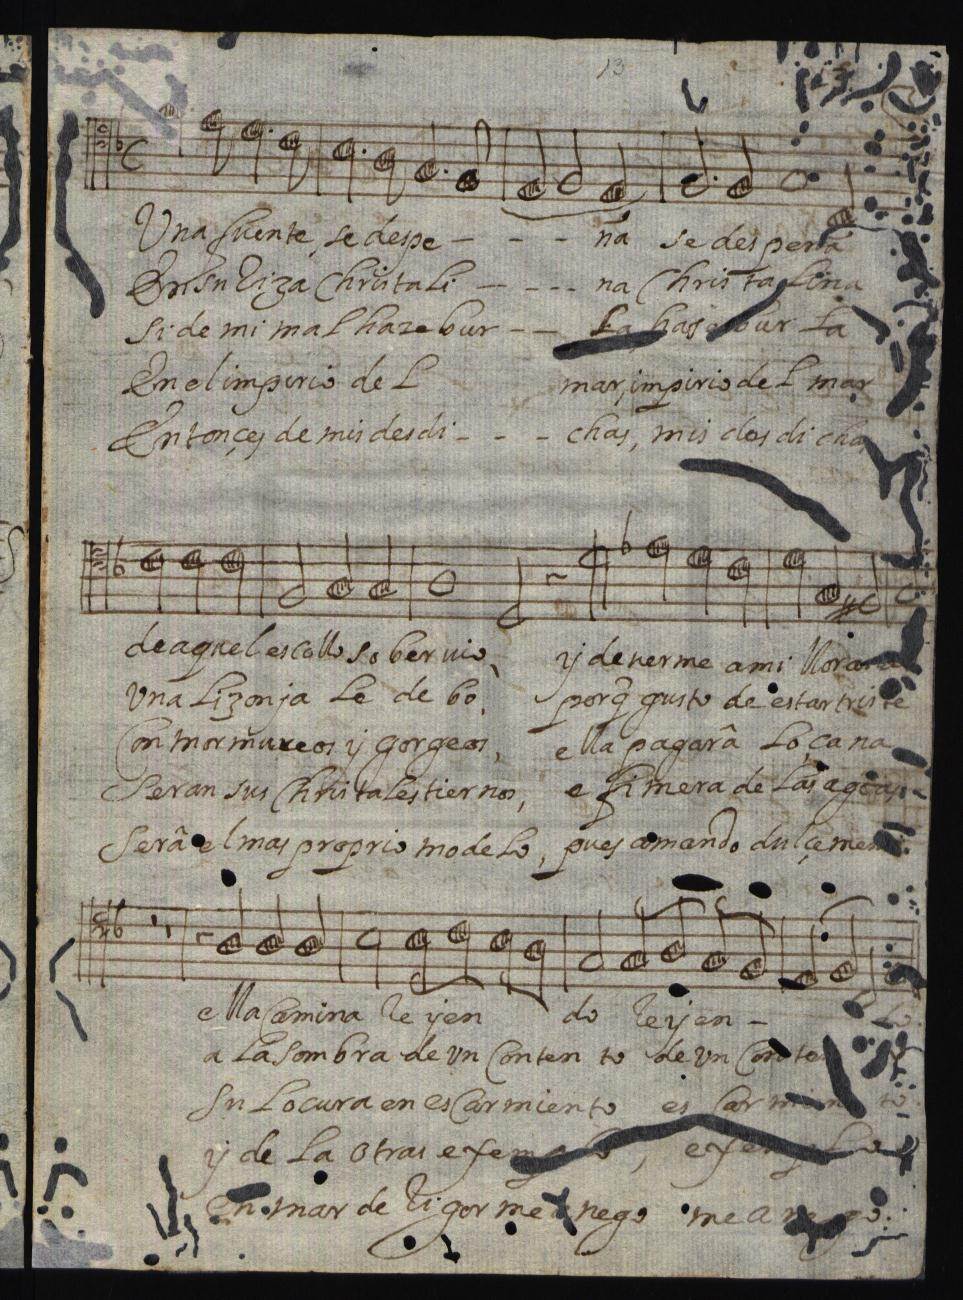 13
Una fuente se despe - - - na se despena
En su riza Christali - - - - na Christalina
Si de mi mal haze bur - - la, haze bur la
En el impirio de L mar, impirio de L mar
Entonçes de mis desdi - - - chas, mis desdicha
de aquel escollo sobervio, y de verme a mi llorar
Una Lizonja Le debo, porq gusto de estar triste
Con mormureos y gorgeos, ella pagarâ Loçana
Seran sus Christales tiernos, efimera de Las
Serâ el mas proprio modeLo, pues amando dulçemen
ella Camina Reyen do Reyen - do
a La sombra de Un Conten to de Un Conten
Su Locura en esCarmiento esCarmiento
y de La otras exemplo, exemplo
En mar de Rigor me anego me anego.